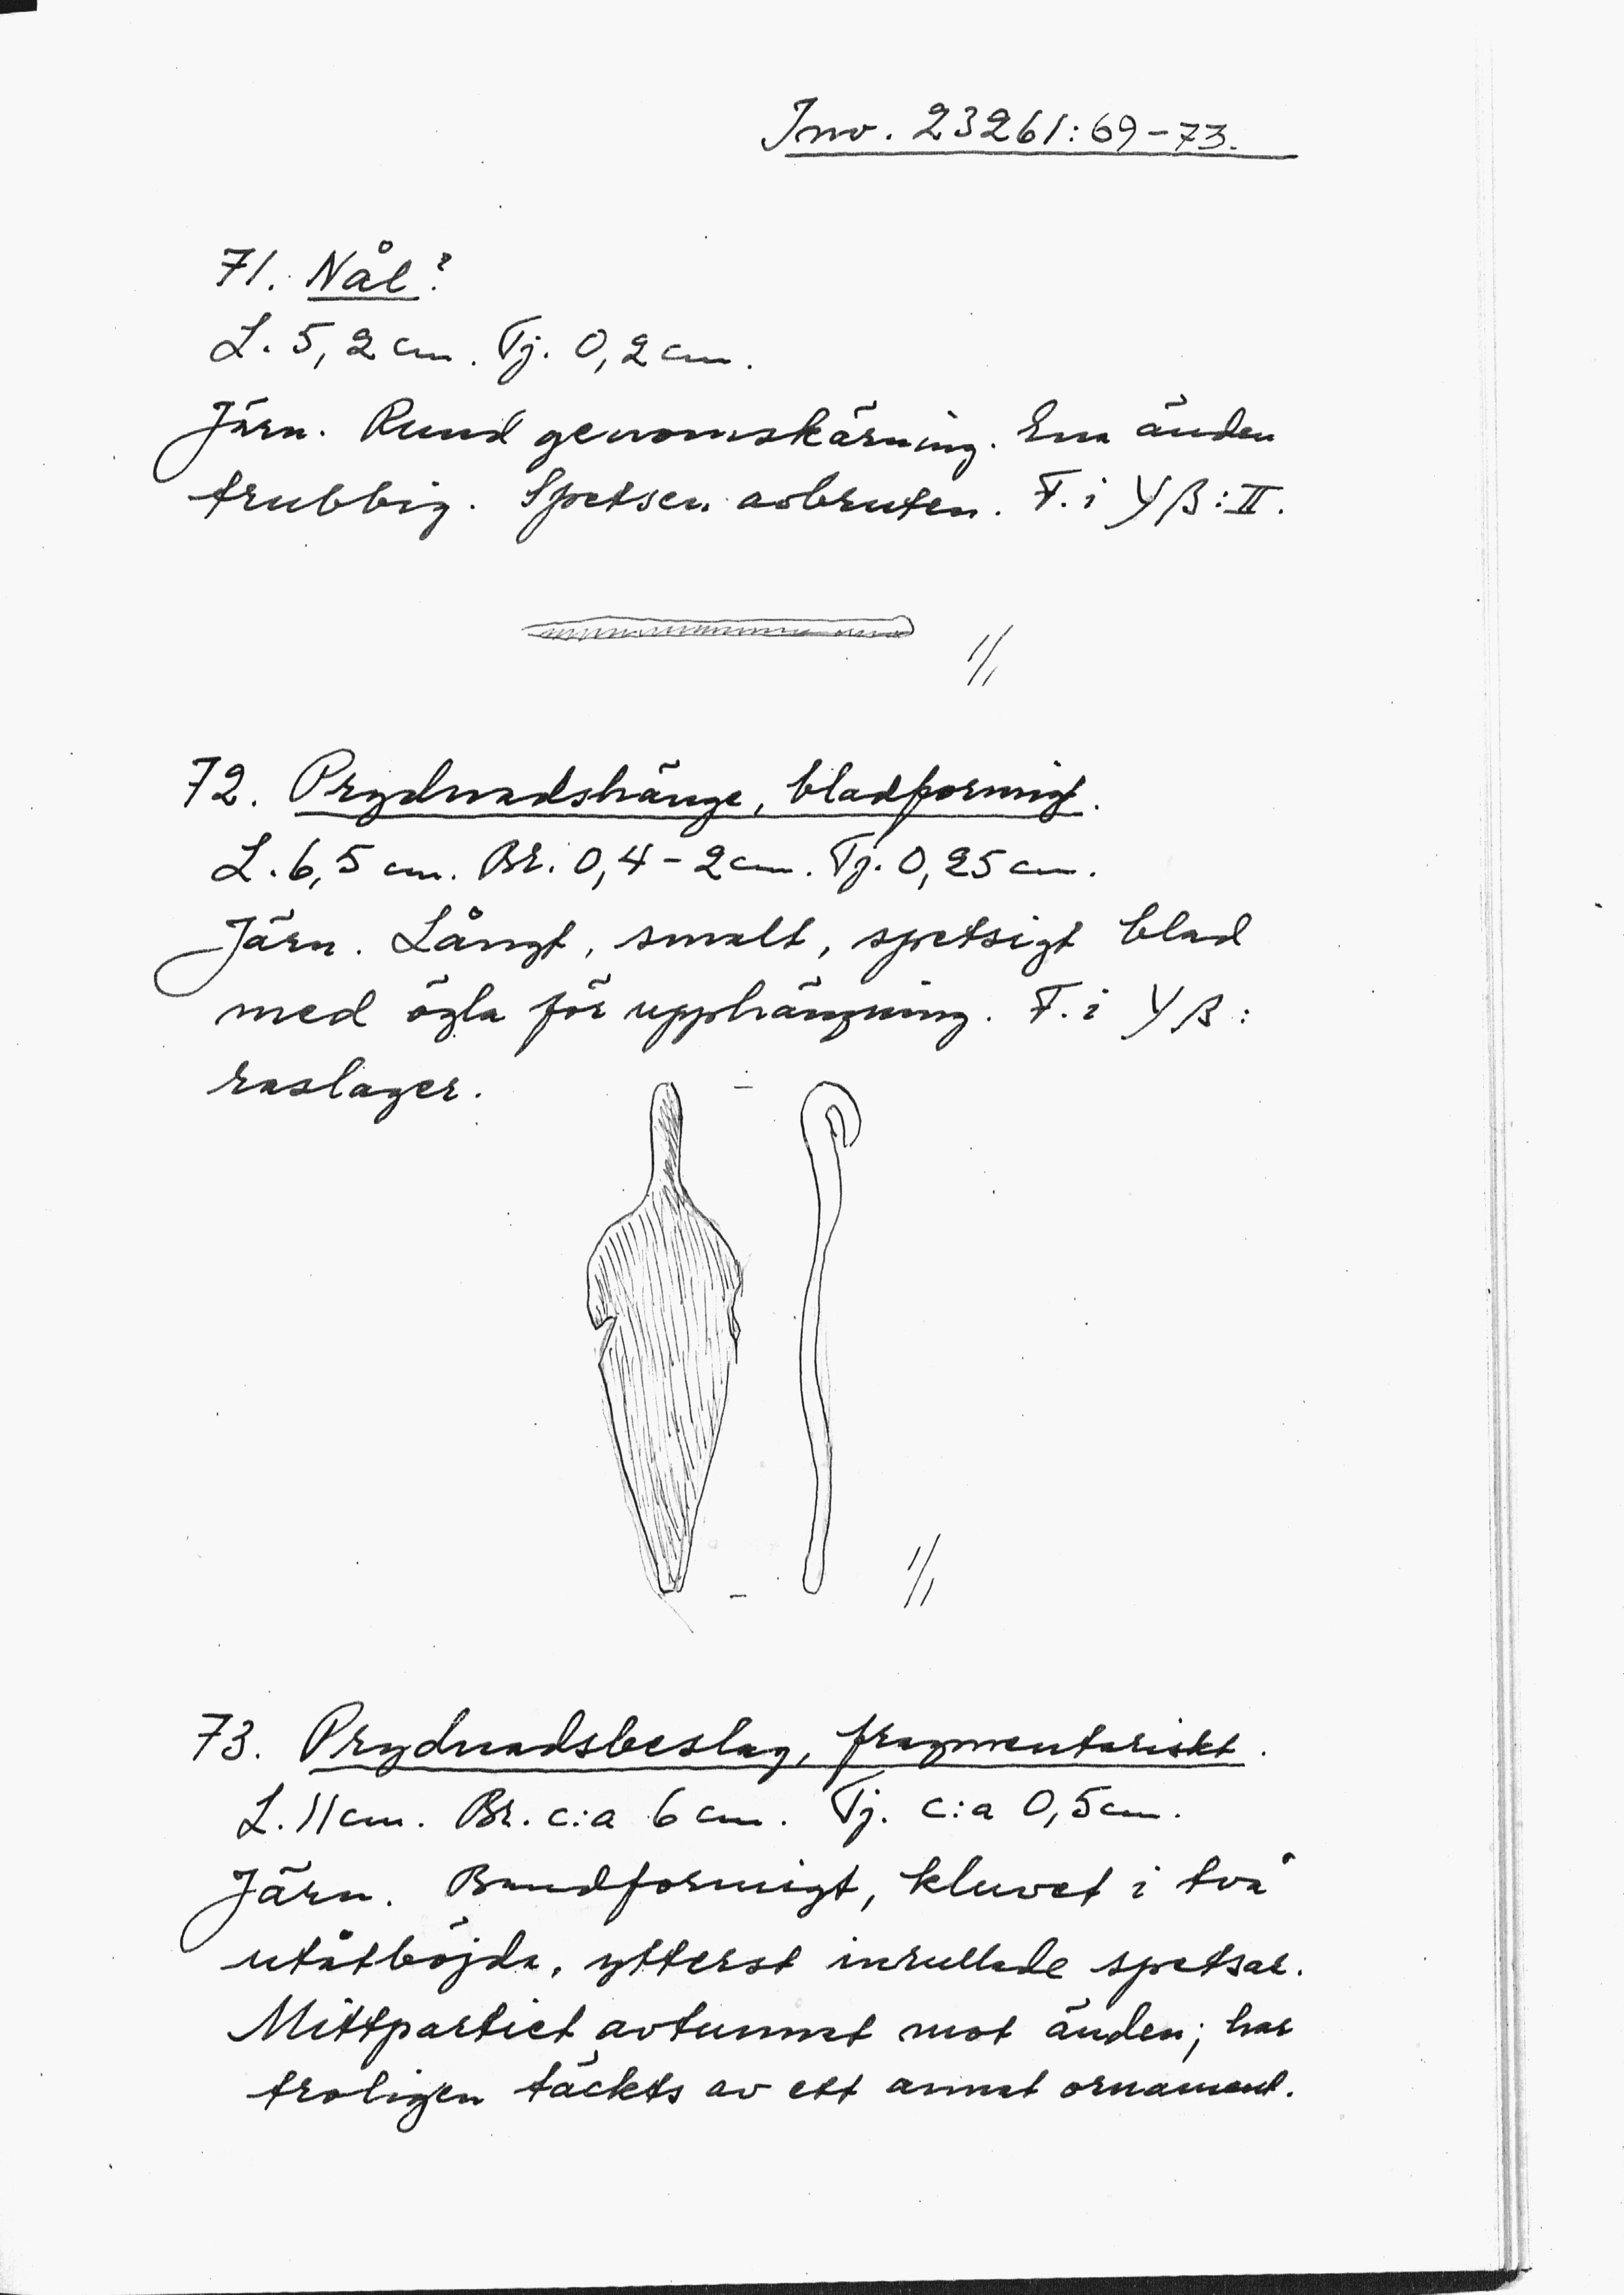 Inv. 23261:69-73.
71. Nål?
L. 5,2 cm. Tj. 0,2 cm.
Järn. Rund genomskärning. Ena änden
trubbig. Spetsen avbruten. F. i Yβ:II.
1/1
72. Prydnadshänge, bladformigt.
L. 6,5 cm. Br. 0,4-2 cm. Tj. 0,25 cm.
Järn. Långt, smalt, spetsigt blad
med ögla för upphängning. F. i Yβ:
raslager.
1/1
73. Prydnadsbeslag, fragmentariskt.
L. 11 cm. Br. c:a 6 cm. Tj. c:a 0,5 cm.
Järn. Bandformigt, kluvet i två
utåtböjda, ytterst inrullade spetsar.
Mittpartiet avtunnat mot änden; har
troligen täckts av ett annat ornament.